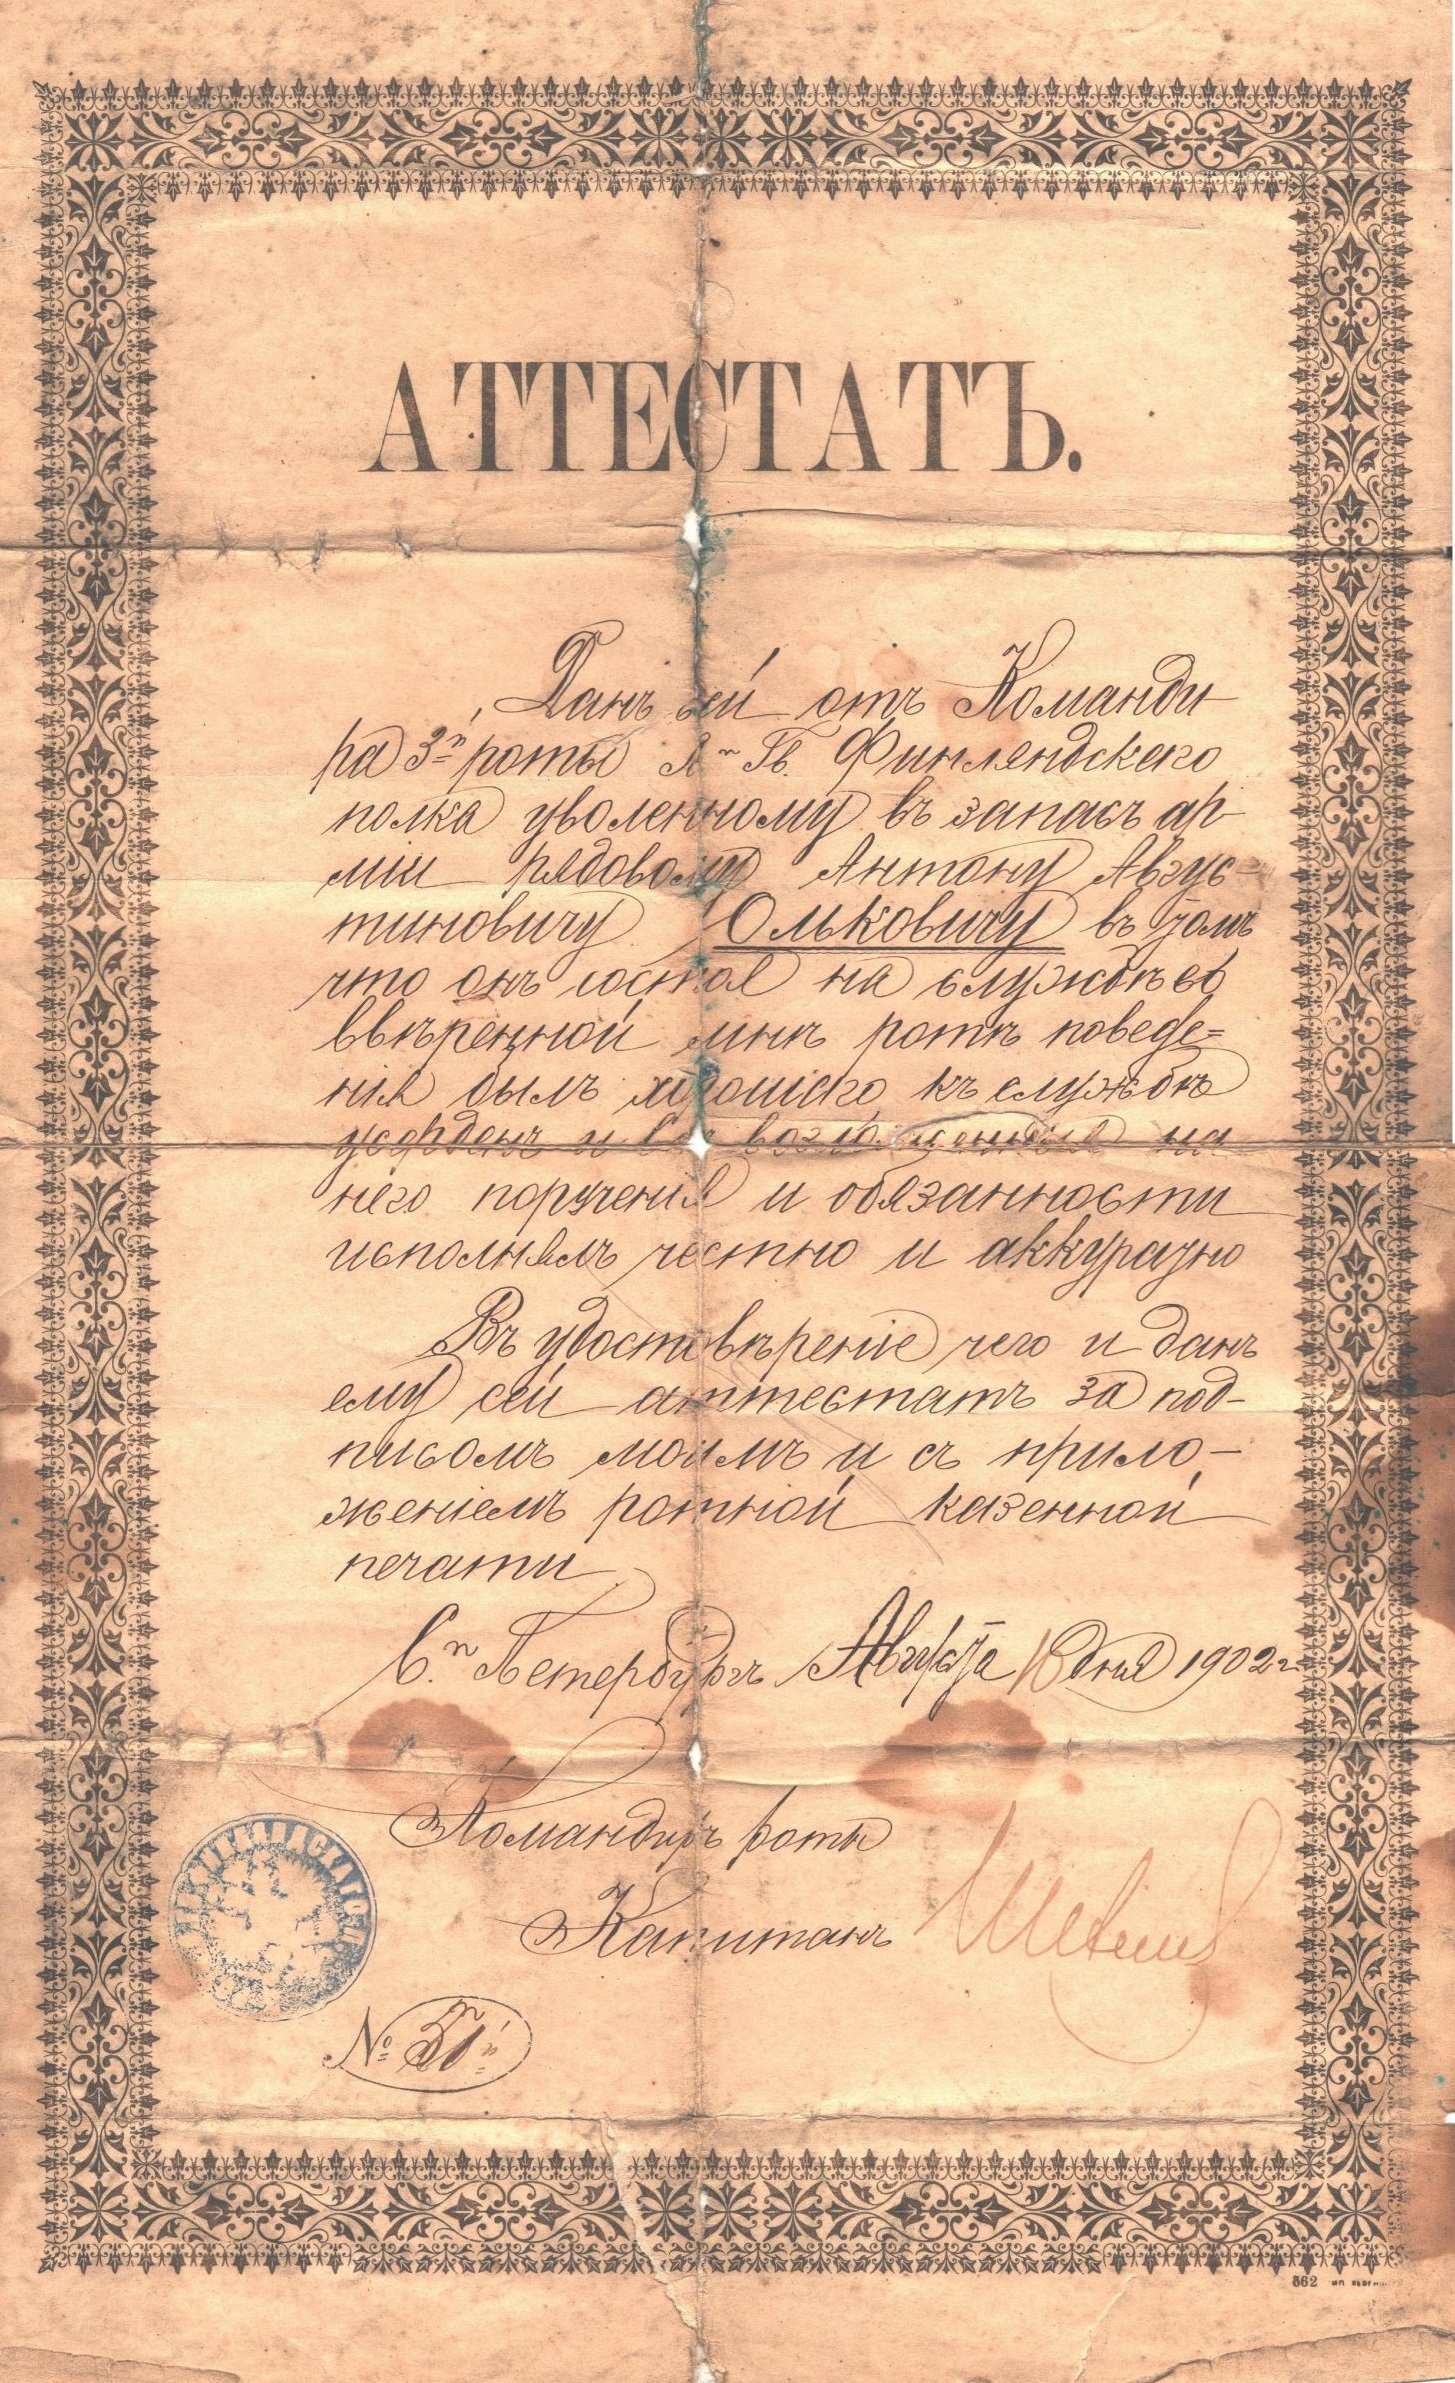 АТТЕСТАТЪ.
Данъ сей отъ Команди
ра 3й роты Л. Гв. Финляндскаго
полка уволенному въ запасъ ар-
міи рядовому Антону Авгус=
тиновичу Ольковичу въ томъ
что онъ состоя на службѣ во
ввѣренной мнѣ ротѣ поведе=
нія былъ хорошаго къ службѣ
усерденъ и все возложенныя на
него порученія и обязанности
исполнялъ честно и аккуратно
Въ удостовѣреніе чего и данъ
ему сей аттестатъ за под-
писомъ моимъ и съ прило-
женіемъ ротной казенной
печати
С. Петербургъ Августа 18 дня 1902 г.
Командиръ роты
Капитанъ
№
562